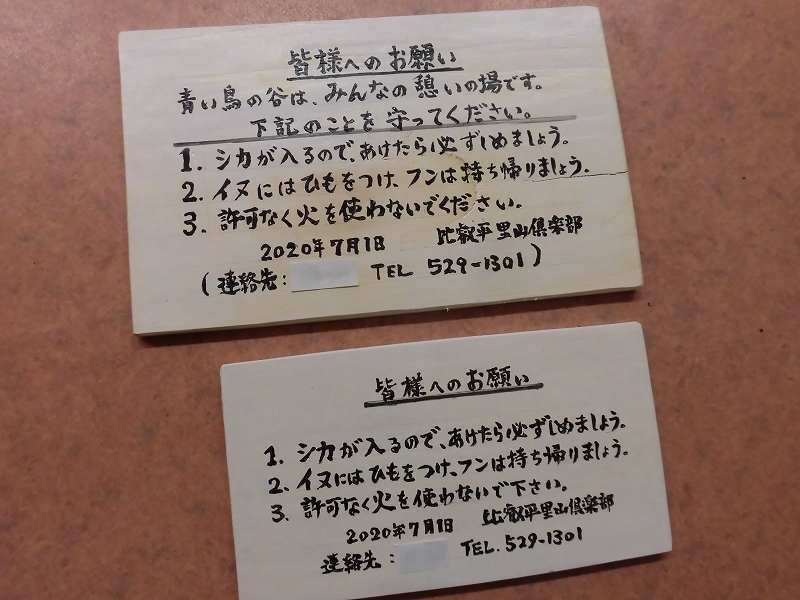 皆様へのお願い
青い鳥の谷は、みんなの憩いの場です。
下記のことを守ってください。
1. シカが入るので、あけたら必ずしめましょう。
2. イヌにはひもをつけ、フンは持ち帰りましょう。
3. 許可なく火を使わないでください。
2020年7月1日 比叡平里山倶楽部
(連絡先: TEL 529-1301)
皆様へのお願い
1. シカが入るので、あけたら必ずしめましょう。
2. イヌにはひもをつけ、フンは持ち帰りましょう。
3. 許可なく火を使わないで下さい。
2020年7月1日 比叡平里山倶楽部
連絡先: TEL. 529-1301